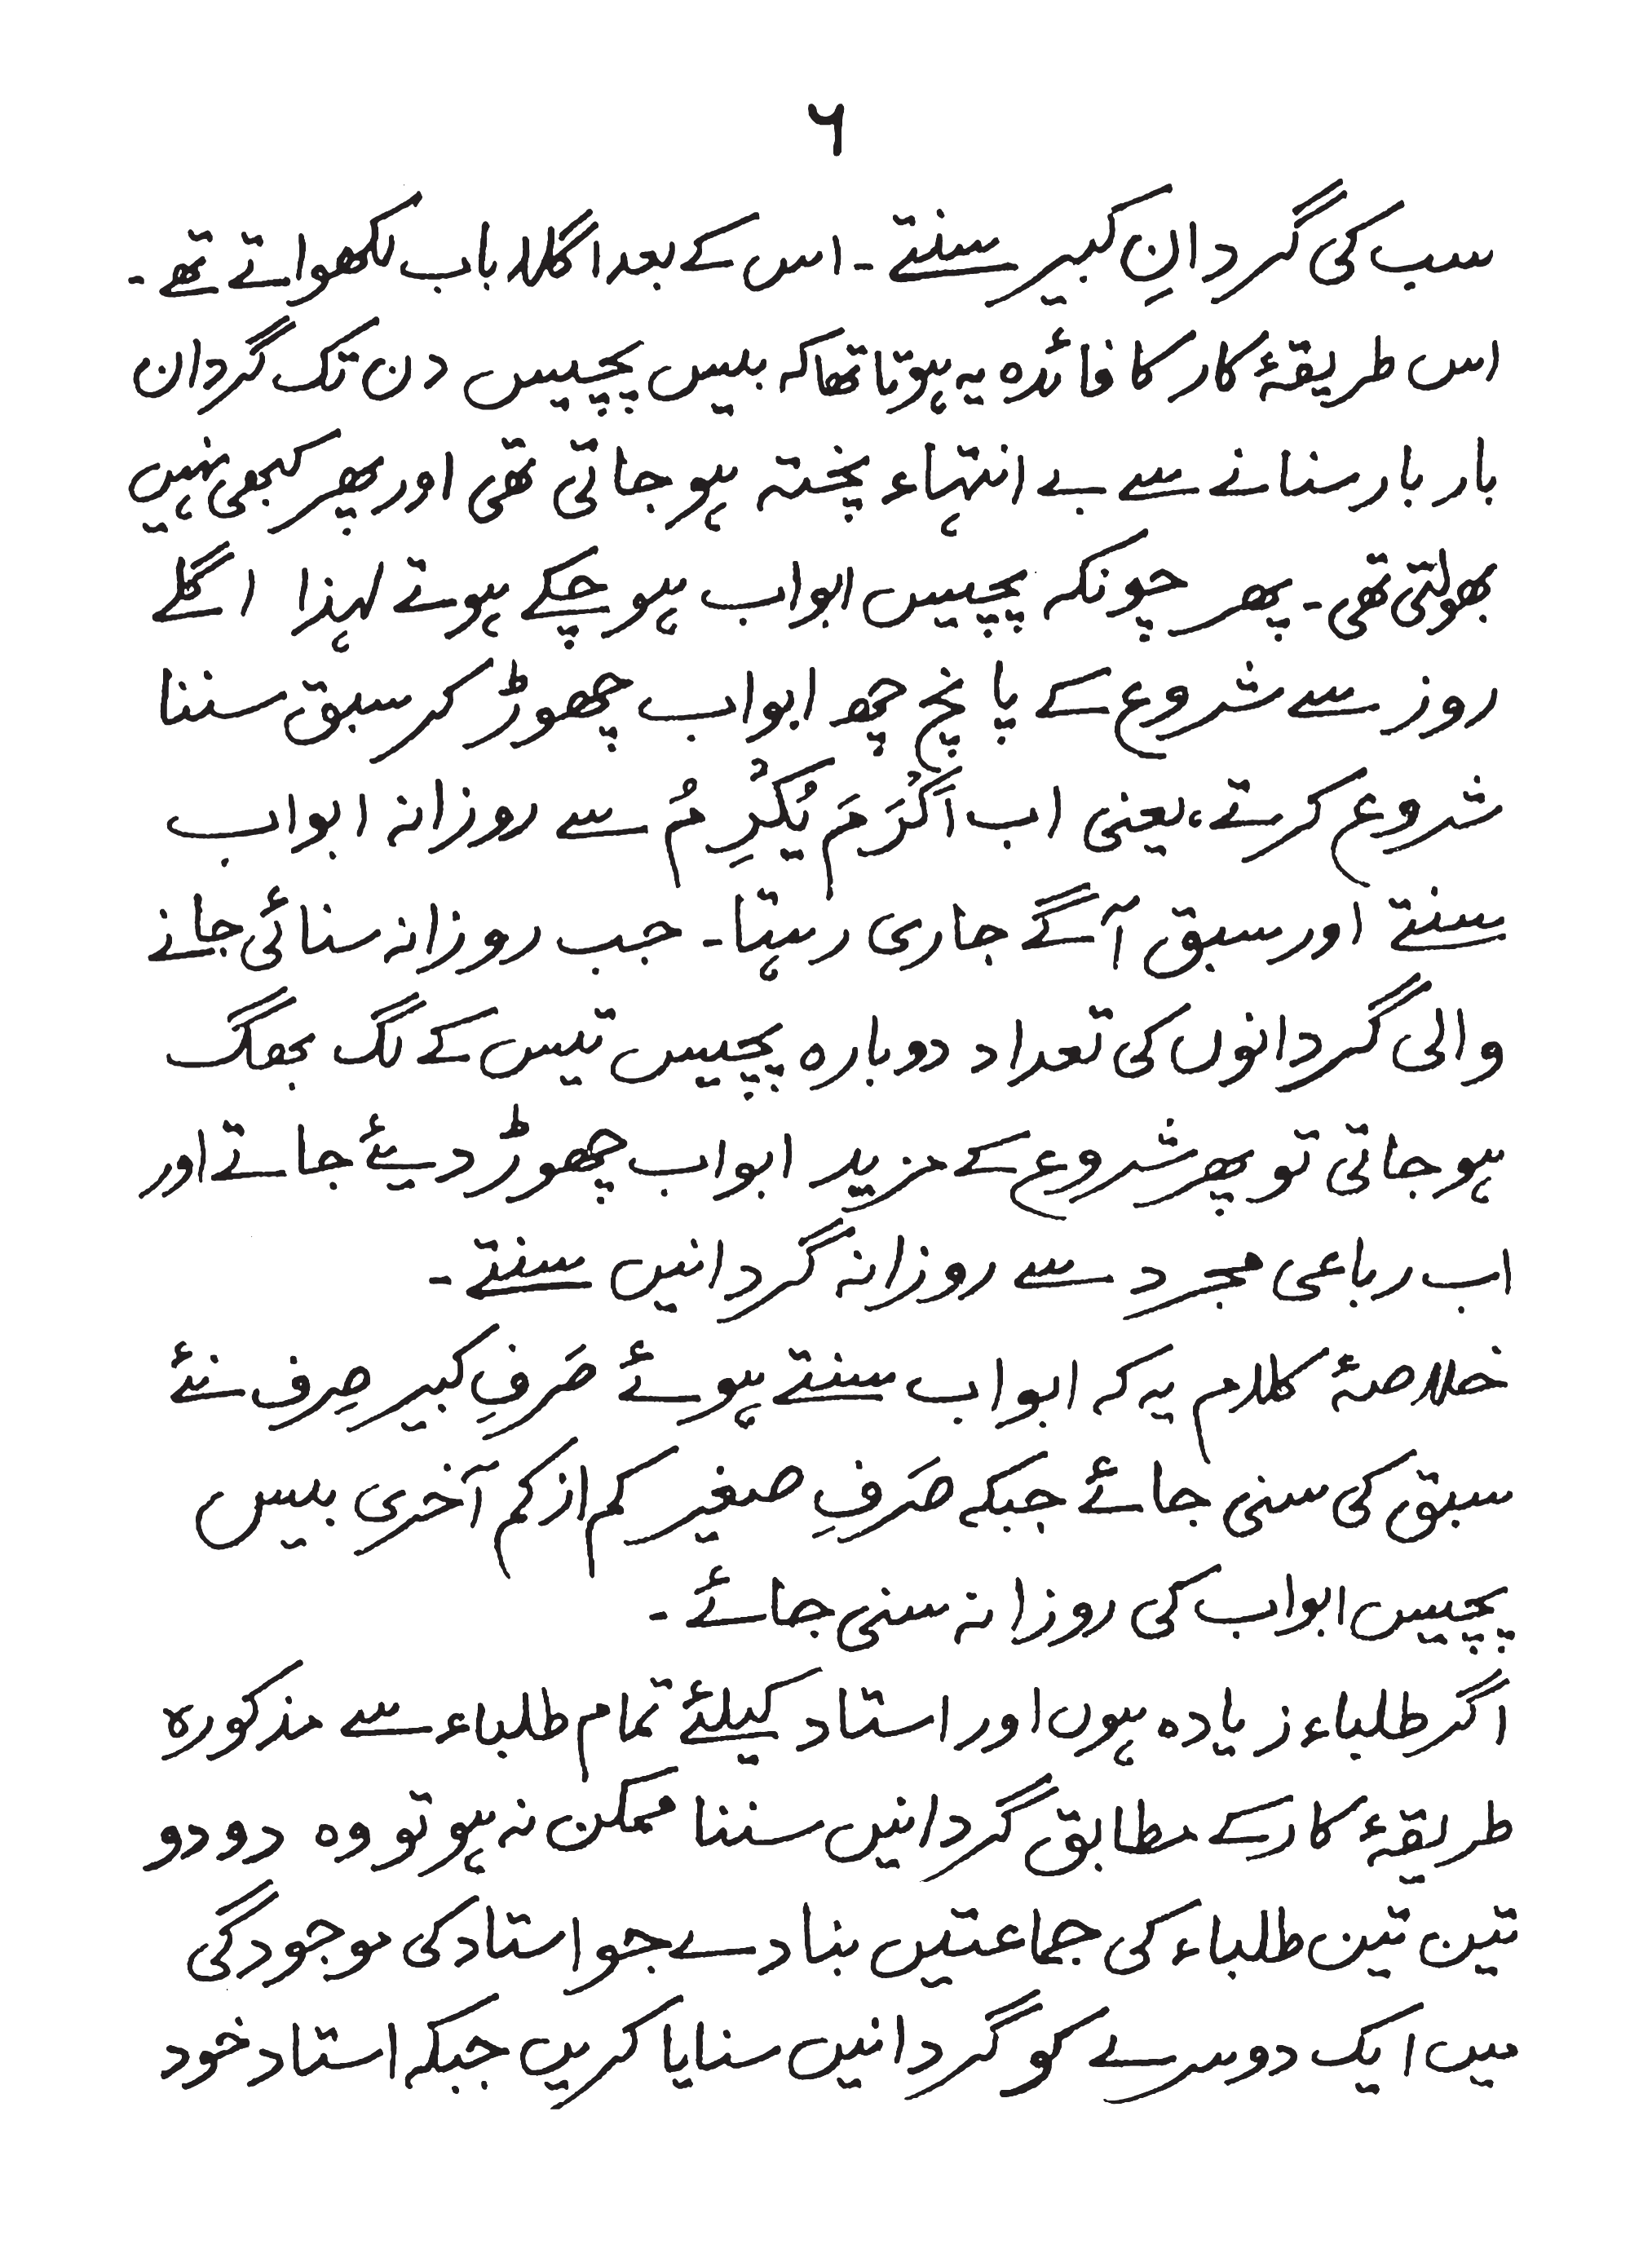 ۶
سب کی گردانِ کبیر سنتے۔ اس کے بعد اگلا باب لکھواتے تھے۔
اس طریقۂ کار کا فائدہ یہ ہوتا تھا کہ بیس پچیس دن تک گردان
بار بار سنانے سے بے انتہاء پختہ ہو جاتی تھی اور پھر کبھی نہیں
بھولتی تھی۔ پھر چونکہ پچیس ابواب ہو چکے ہوتے لہذا اگلے
روز سے شروع کے پانچ چھ ابواب چھوڑ کر سبق سننا
شروع کرتے، یعنی اب اَکْرَمَ یُکْرِمُ سے روزانہ ابواب
سنتے اور سبق آگے جاری رہتا۔ جب روزانہ سنائی جانے
والی گردانوں کی تعداد دوبارہ پچیس تیس کے لگ بھگ
ہو جاتی تو پھر شروع کے مزید ابواب چھوڑ دیئے جاتے اور
اب رباعی مجرد سے روزانہ گردانیں سنتے۔
خلاصۂ کلام یہ کہ ابواب سنتے ہوئے صَرفِ کبیر صِرف نئے
سبق کی سنی جائے جبکہ صَرفِ صغیر کم از کم آخری بیس
پچیس ابواب کی روزانہ سنی جائے۔
اگر طلباء زیادہ ہوں اور استاد کیلئے تمام طلباء سے مذکورہ
طریقۂ کار کے مطابق گردانیں سننا ممکن نہ ہو تو وہ دو دو
تین تین طلباء کی جماعتیں بنا دے جو استاد کی موجودگی
میں ایک دوسرے کو گردانیں سنایا کریں جبکہ استاد خود